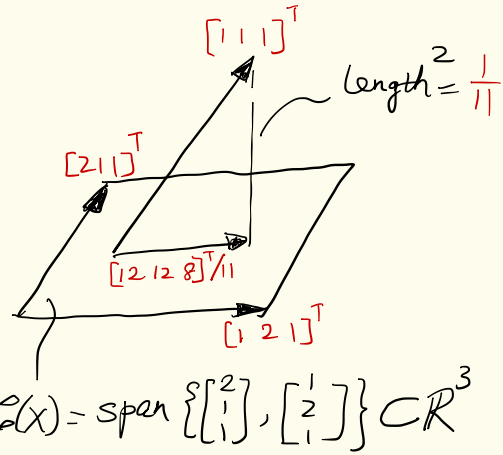 [1 1 1]^T
length^2 = 1/11
[2 1 1]^T
[12 12 8]^T/11
[1 2 1]^T
(X) = span {[2 1 1], [1 2 1]} ⊂ R^3